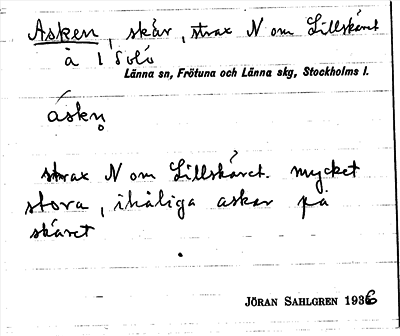 Asken, skär, strax N om Lillskäret
å 1 Solö
Länna sn, Frötuna och Länna skg, Stockholms l.
áskn̥
strax N om Lillskäret. mycket
stora, ihåliga askar på
skäret
JÖRAN SAHLGREN 1936